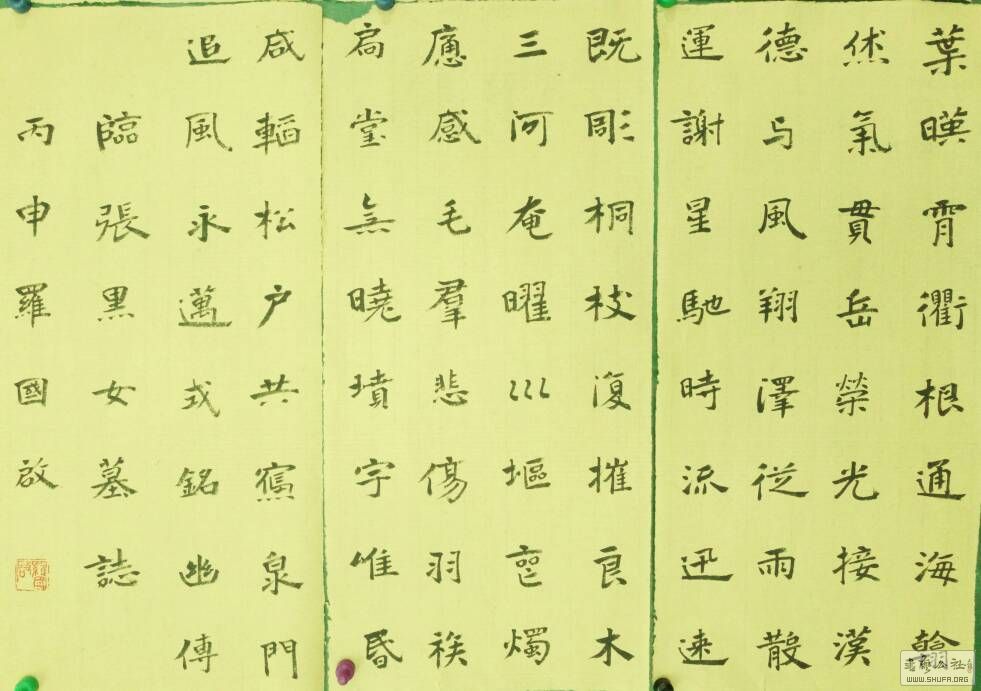 葉暎霄衢根通海翰
烋氣貫岳榮光接漢
德与風翔澤従雨散
運謝星馳時流迅速
既彫桐枝復摧良木
三河奄曜巛塸燭
感毛羣悲傷羽族
扃堂無曉墳宇唯昏
咸松戶共泉門
追風永邁式銘幽傳
臨張黑女墓誌
丙申羅國啟
書藝公社
WWW.SHUFA.ORG